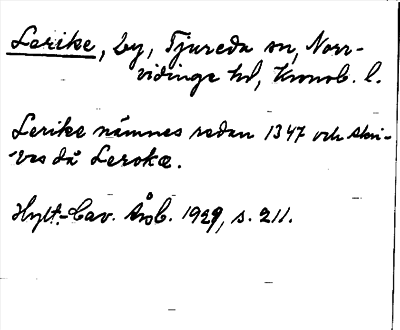 Lerike, by, Tjureda sn, Norr-
vidinge hd, Kronob. l.
Lerike nämnes redan 1347 och skri-
ves då Lerokæ.
Hylt.-Cav. Årsb. 1929, s. 211.